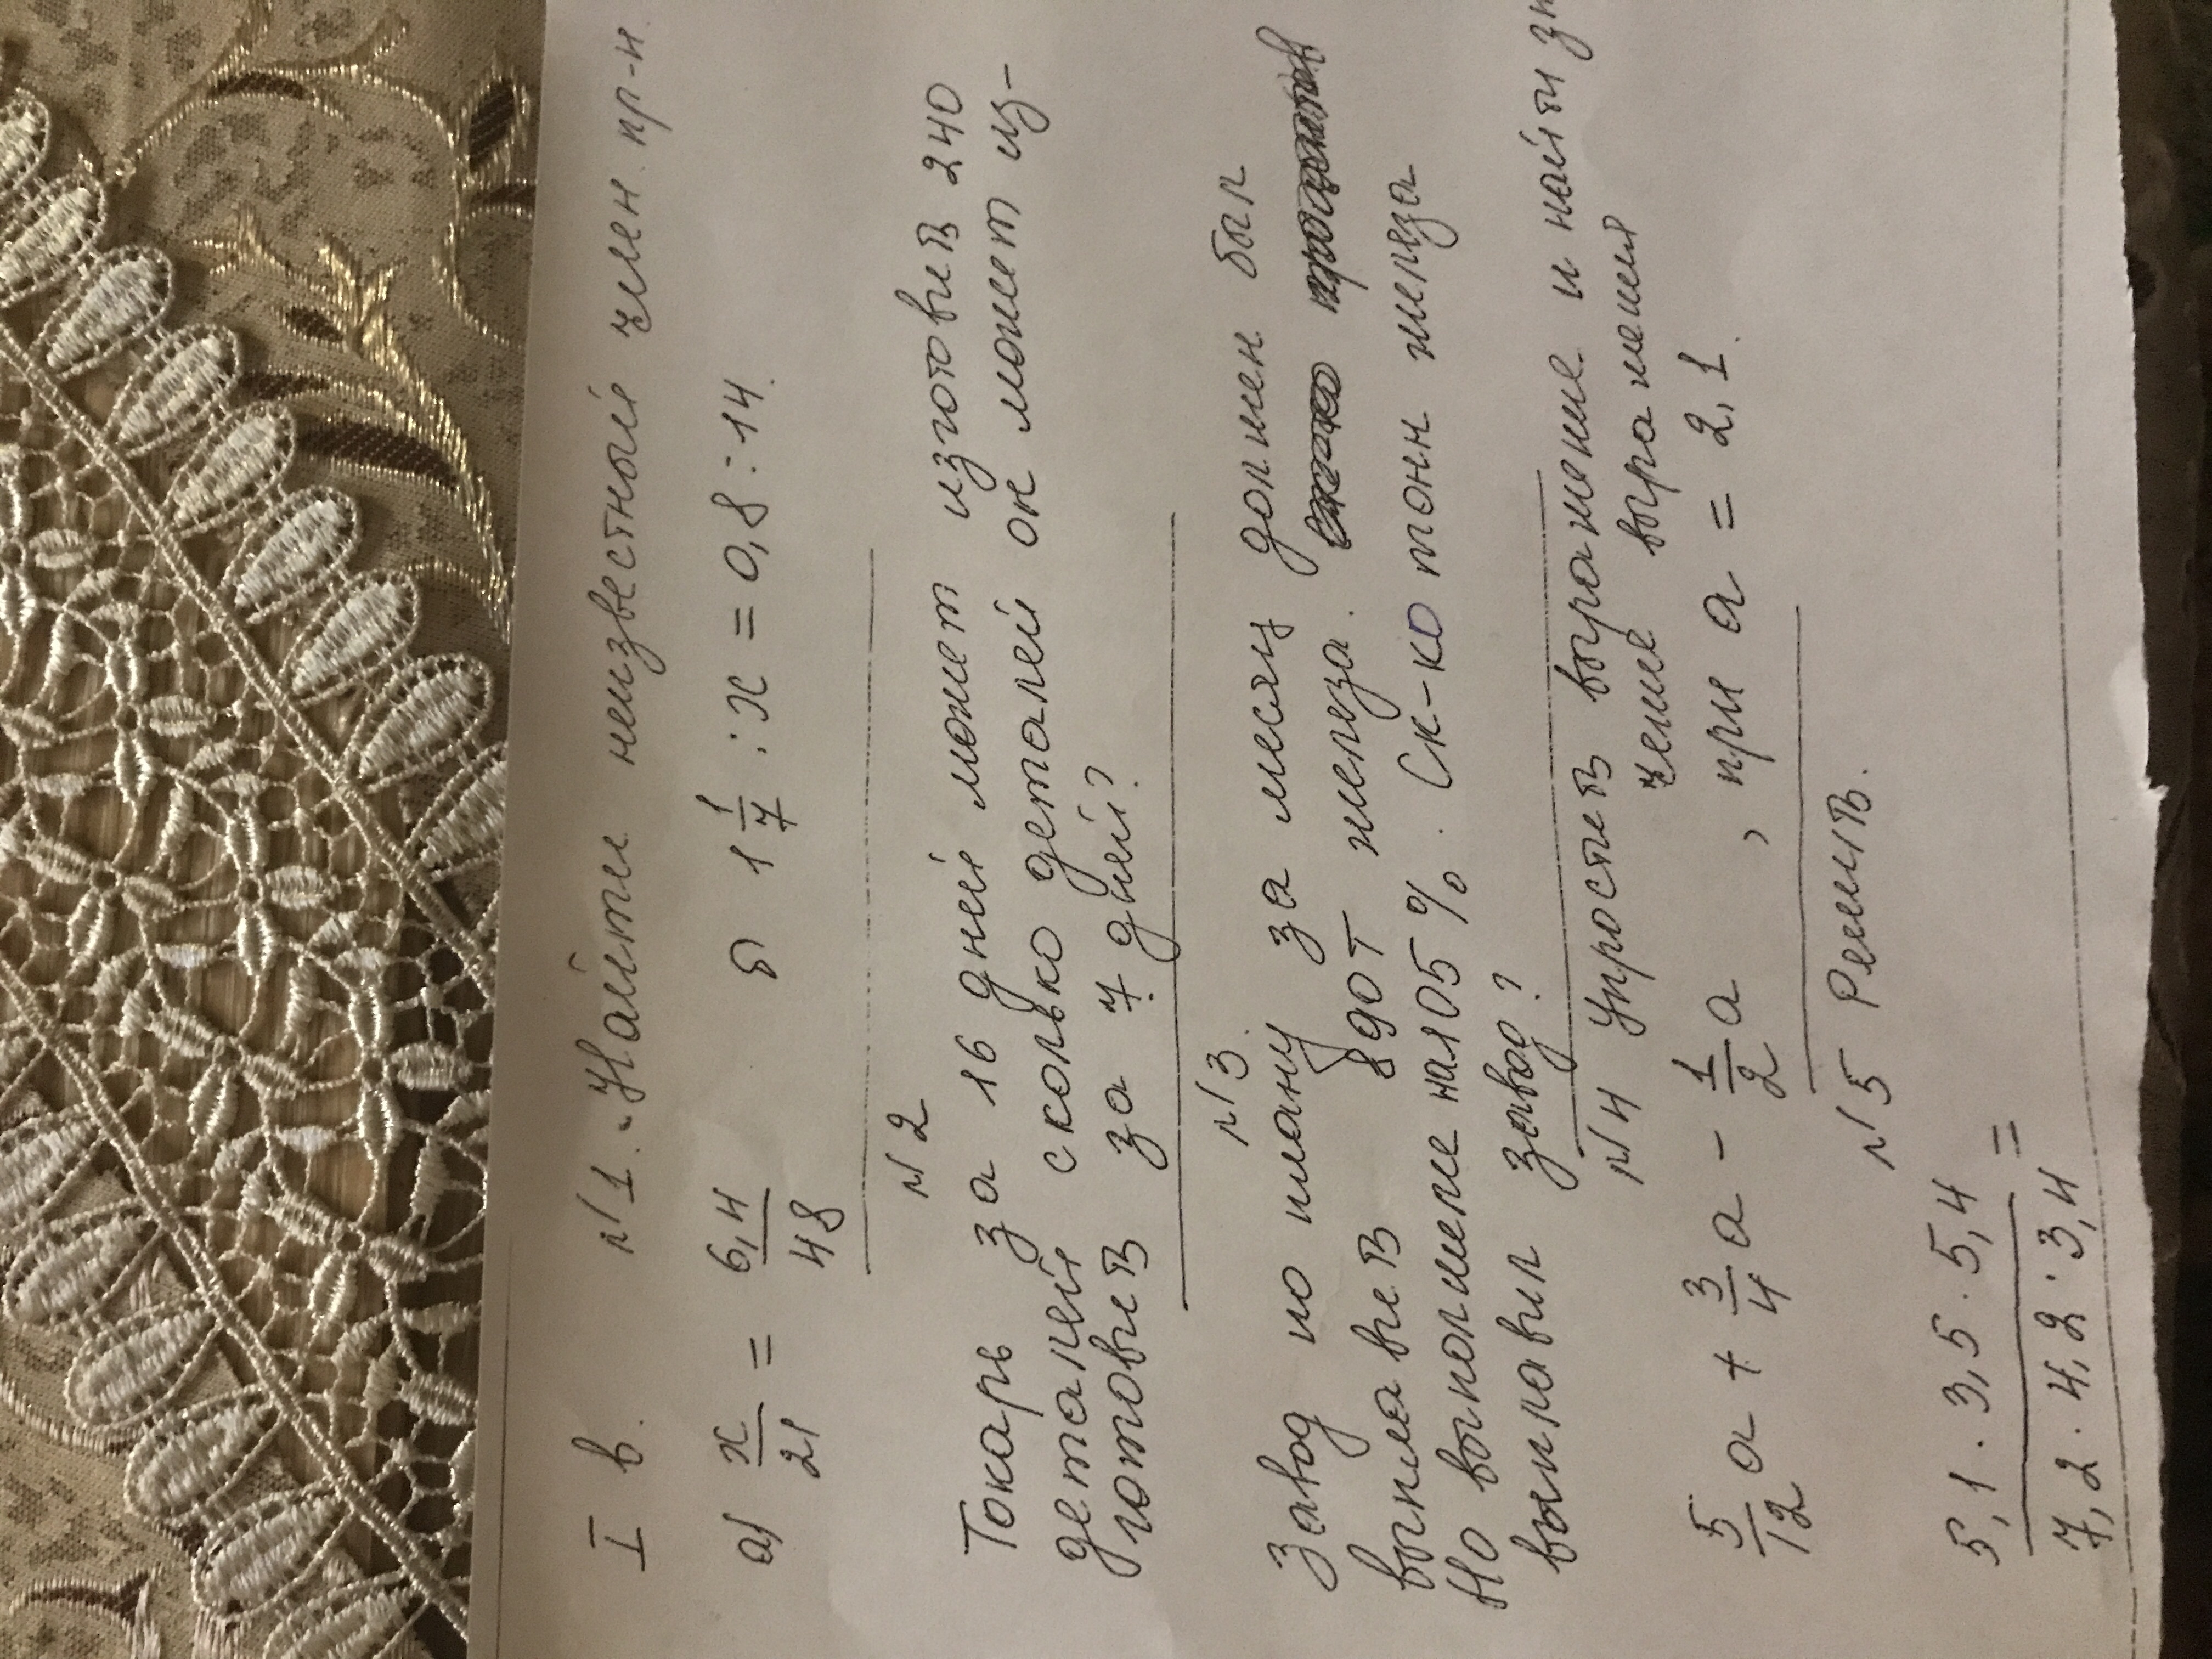 I в. №1. Найти неизвестный член. пр-и.
а) x/21 = 6,4/48 б) 1 1/7 : x = 0,8 : 14.
№2
Токарь за 16 дней может изготовить 240
деталей сколько деталей он может из-
готовить за 7 дней?
№3.
Завод по плану за месяц должен был
выплавить 890т железа.
Но выполнили на 105%. Ск-ко тонн железа
выплавил завод?
№4 Упростить выражение и найти зн
чение выражения
5/12 a + 3/4 a - 1/2 a , при a = 2,1.
№5 Решить.
5,1 · 3,5 · 5,4 / 7,2 · 4,2 · 3,4 =